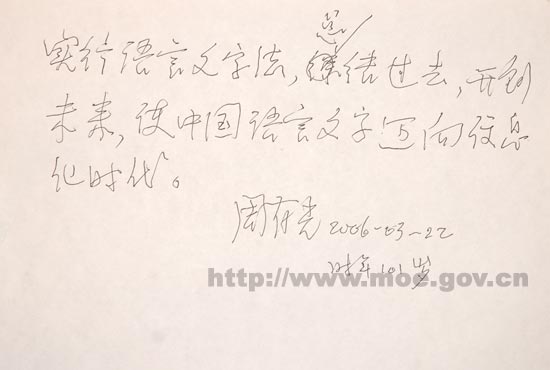 实行语言文字法,总结过去,开创
未来,使中国语言文字迈向信息
化时代。
周有光 2006-03-22
时年101岁
http://www.moe.gov.cn